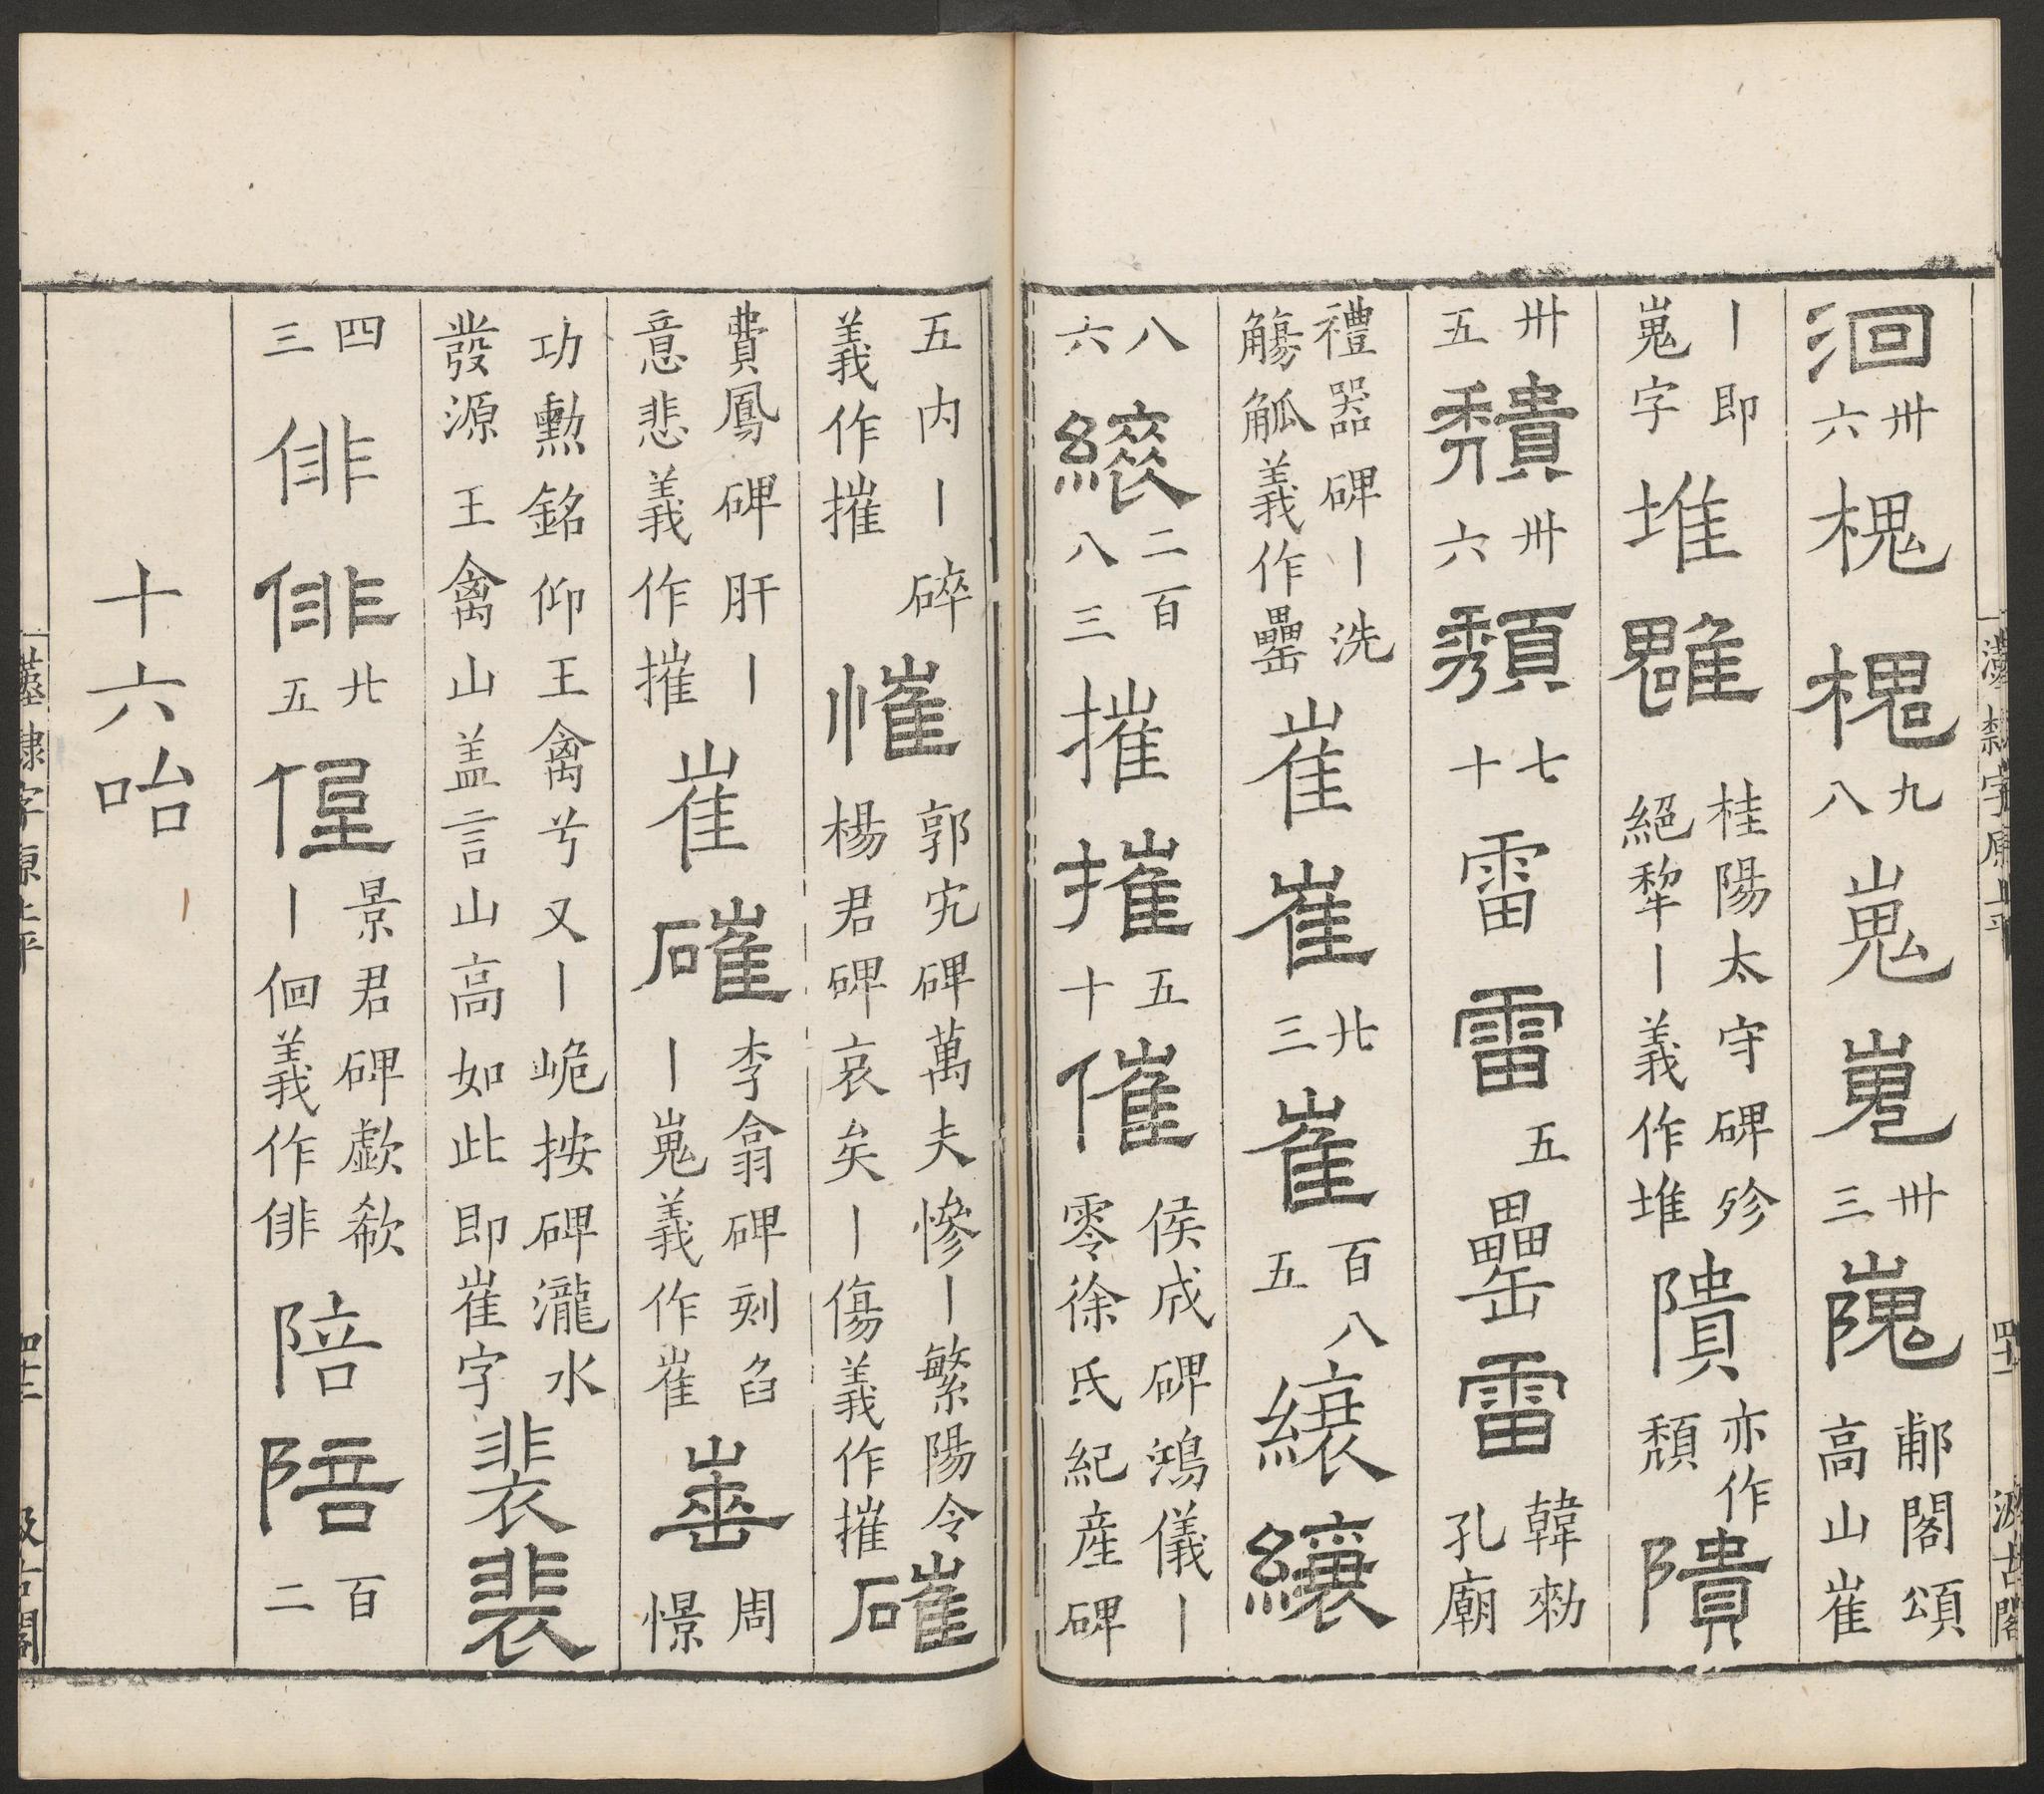 洄卅六槐槐九八嵬嵬卅三隗郙閣頌高山崔
丨即嵬字堆䧼桂陽太守碑殄絕犂丨義作堆隤亦作頹隤
卅五穨卅六頹七十雷雷五罍雷韓勑孔廟
禮器碑丨洗觴觚義作罍崔崔廿三崔百八五縗縗
八六縗二百八三摧摧五十催侯成碑鴻儀丨零徐氏紀産碑
五內丨碎義作摧慛郭究碑萬夫慘丨繁陽令楊君碑哀矣丨傷義作摧磪
費鳳碑肝丨意悲義作摧崔磪李翕碑刻臽丨嵬義作崔𡹐周憬
功勲銘仰王禽兮又丨峗按碑瀧水發源王禽山盖言山高如此即崔字裴裴
四三俳俳廿五俚景君碑歔欷丨佪義作俳陪陪百二
十六咍
漢隸字原上平 四十一 汲古閣
漢隸字原上平 四十二 汲古閣